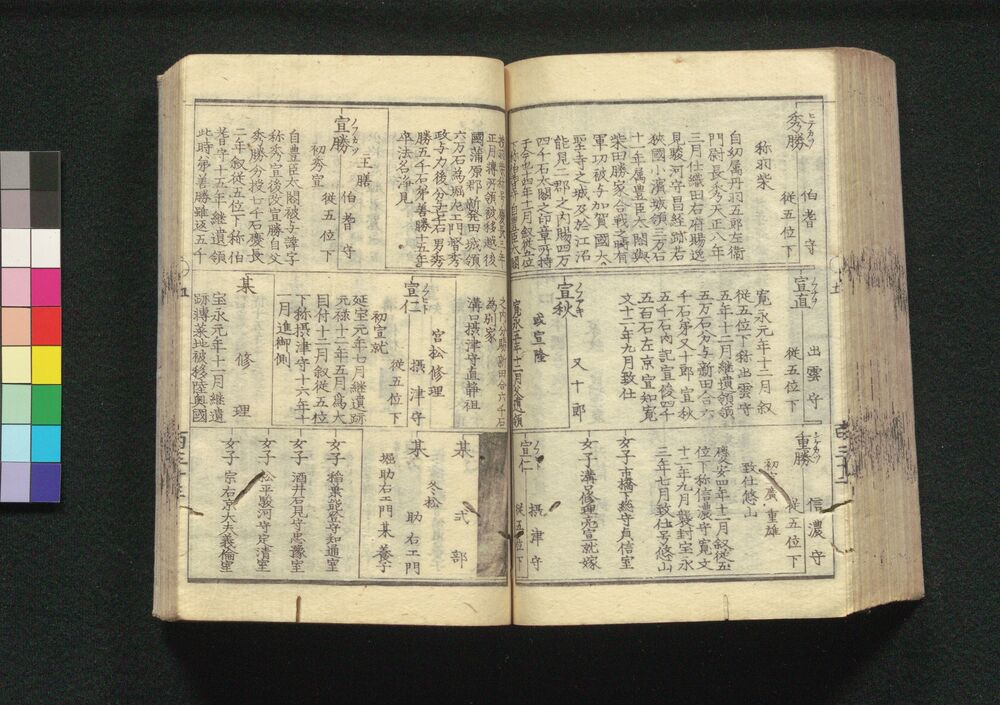 ヒデカツ
秀勝
伯耆守
従五位下
称羽柴
自幼属丹羽五郎左衛
門尉長秀天正八年
三月仕織田右府賜逸
見駿河守昌経跡若
狭国小濱城領三万石
十一年属豊臣太閤与
柴田勝家合戦之時有
軍功被与加賀国大
聖寺之城及於江沼
能見二郡之内賜四万
四千石太閤之印章所持
于今也十四年十二月叙従五位
宣直
出雲守
従五位下
寛永元年十二月叙
従五位下称出雲守
五年十二月継墳領領
五万石分与新田合六
千石弟又十郎宣秋
千五百石内記宣俊四千
五百石左京宣知寛
文十二年九月致仕
宣秋
又十郎
或宣隆
寛永五年十二月父遺領
之内分賜新田合六千石
為別家
溝口摂津守直静祖
重勝
信濃守
従五位下
初 廣 重雄
致仕悠山
慶安四年十二月叙従五
位下称信濃守寛文
十二年九月襲封宝永
三年七月致仕号悠山
女子 古橋下総守貞信室
女子 溝口修理亮宣就嫁
宣仁
摂津守
従五位下
正月轉所領被移越後
国蒲原郡新発田城領
六万石為城主
勝五千石弟善勝十五年
卒法名浄見
ノフカツ
宣勝
主膳
伯耆守
従五位下
初秀宣
自豊臣太閤被与諱字
称秀宣後改宣勝自父
秀勝分授七千石慶長
二年叙従五位下称伯
耆守十五年継遺領
此時弟善勝雖返五千
宮松修理
宣仁
摂津守
従五位下
初宣就
延宝元年七月継遺跡
元禄十二年五月為大
目付十二月叙従五位
下称摂津守十六年十
一月進御側
某
修理
宝永元年十一月継遺
跡轉菜地被移陸奥国
某
式部
冬松
某
助右エ門
堀助右エ門某養子
女子 稲葉能登守知通室
女子 酒井石見守忠豫室
女子 松平駿河守定清室
女子 宗右京大夫義倫室